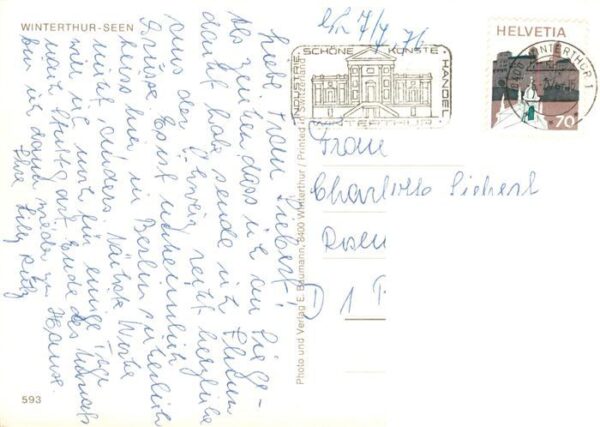 WINTERTHUR-SEEN
Liebe Frau Siebert!
Als Zeichen, dass ich an Sie ge-
dacht habe sende ich Ihnen
aus der Schweiz recht herzliche
Grüsse. Es ist unheimlich
heiss hier, in Berlin sicherlich
nicht anders. Nächste Woche
will ich noch für einige Tage
nach Stuttgart. Ende des Monats
bin ich dann wieder zu Hause.
Ihre Lilly
593
Photo und Verlag E. Baumann, 8400 Winterthur / Printed in Switzerland
INDUSTRIE · SCHÖNE KÜNSTE · HANDEL
WINTERTHUR
HELVETIA
70
WINTERTHUR 1
Frau
Charlotte Siebert
Rosen
D 1